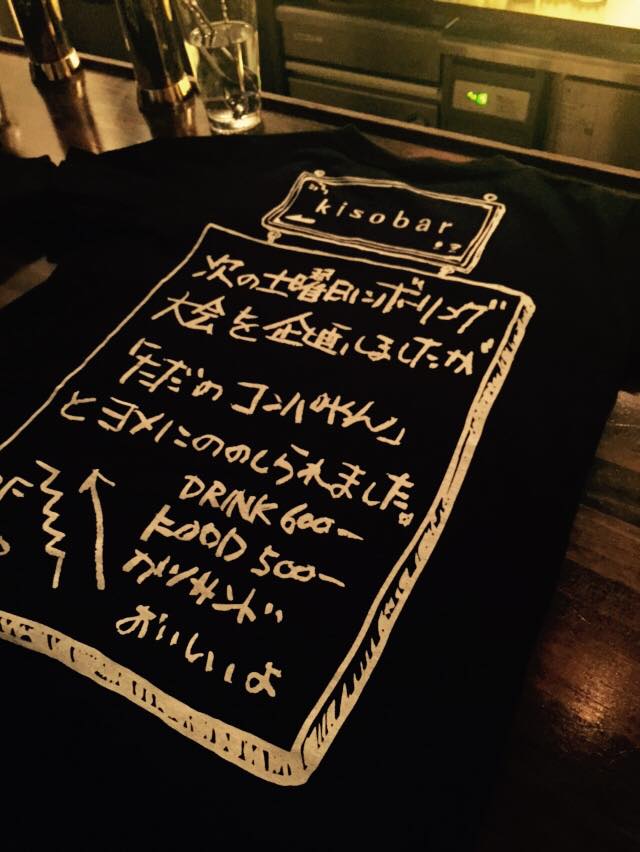 kisobar
次の土曜日にボーリング
大会を企画しましたが
「ただのコンパやん」
とヨメにののしられました。
DRINK 600ー
FOOD 500ー
カツサンド
おいしいよ